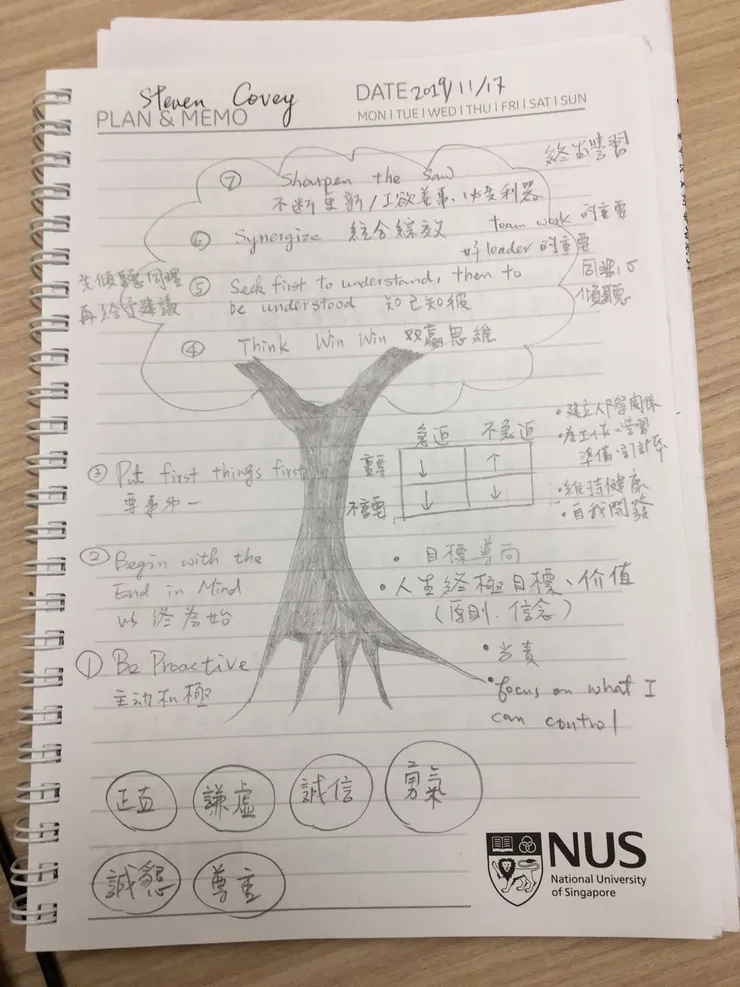 Steven Covey
PLAN & MEMO
DATE 2019/11/17
MON | TUE | WED | THU | FRI | SAT | SUN
終生學習
⑦ Sharpen the Saw
不断更新/工欲善事,必先利器
⑥ Synergize 統合綜效
team work 的重要
好 leader 的重要
⑤ Seek first to understand, then to
be understood 知己知彼
先傾聽同理
再給予建議
同理心
傾聽
④ Think Win Win 双贏思維
③ Put first things first
要事第一
急迫 不急迫
重要 ↓ ↑
不重要 ↓ ↓
•建立人際關係
•為工作、學習
準備、訂計畫
•維持健康
•自我開發
② Begin with the
End in Mind
以终為始
• 目標導向
•人生終極目標、价值
(原則、信念)
① Be Proactive
主动积極
•当責
•focus on what I
can control
正直
謙虛
誠信
勇氣
誠懇
尊重
NUS
National University
of Singapore